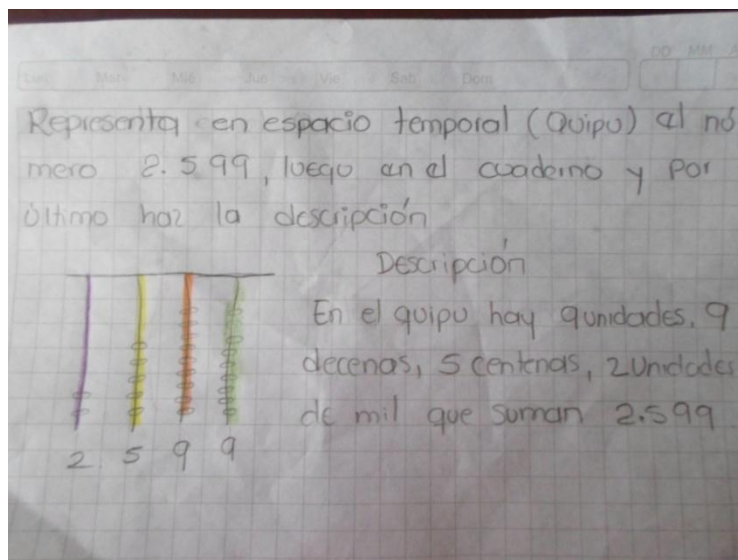 DD MM A
Lun Mar Mié Jue Vie Sab Dom
Representa en espacio temporal (Quipu) al nú
mero 2.599, luego en el cuaderno y por
último haz la descripción
Descripción
En el quipu hay 9unidades, 9
decenas, 5 centenas, 2unidades
de mil que suman 2.599
2 5 9 9